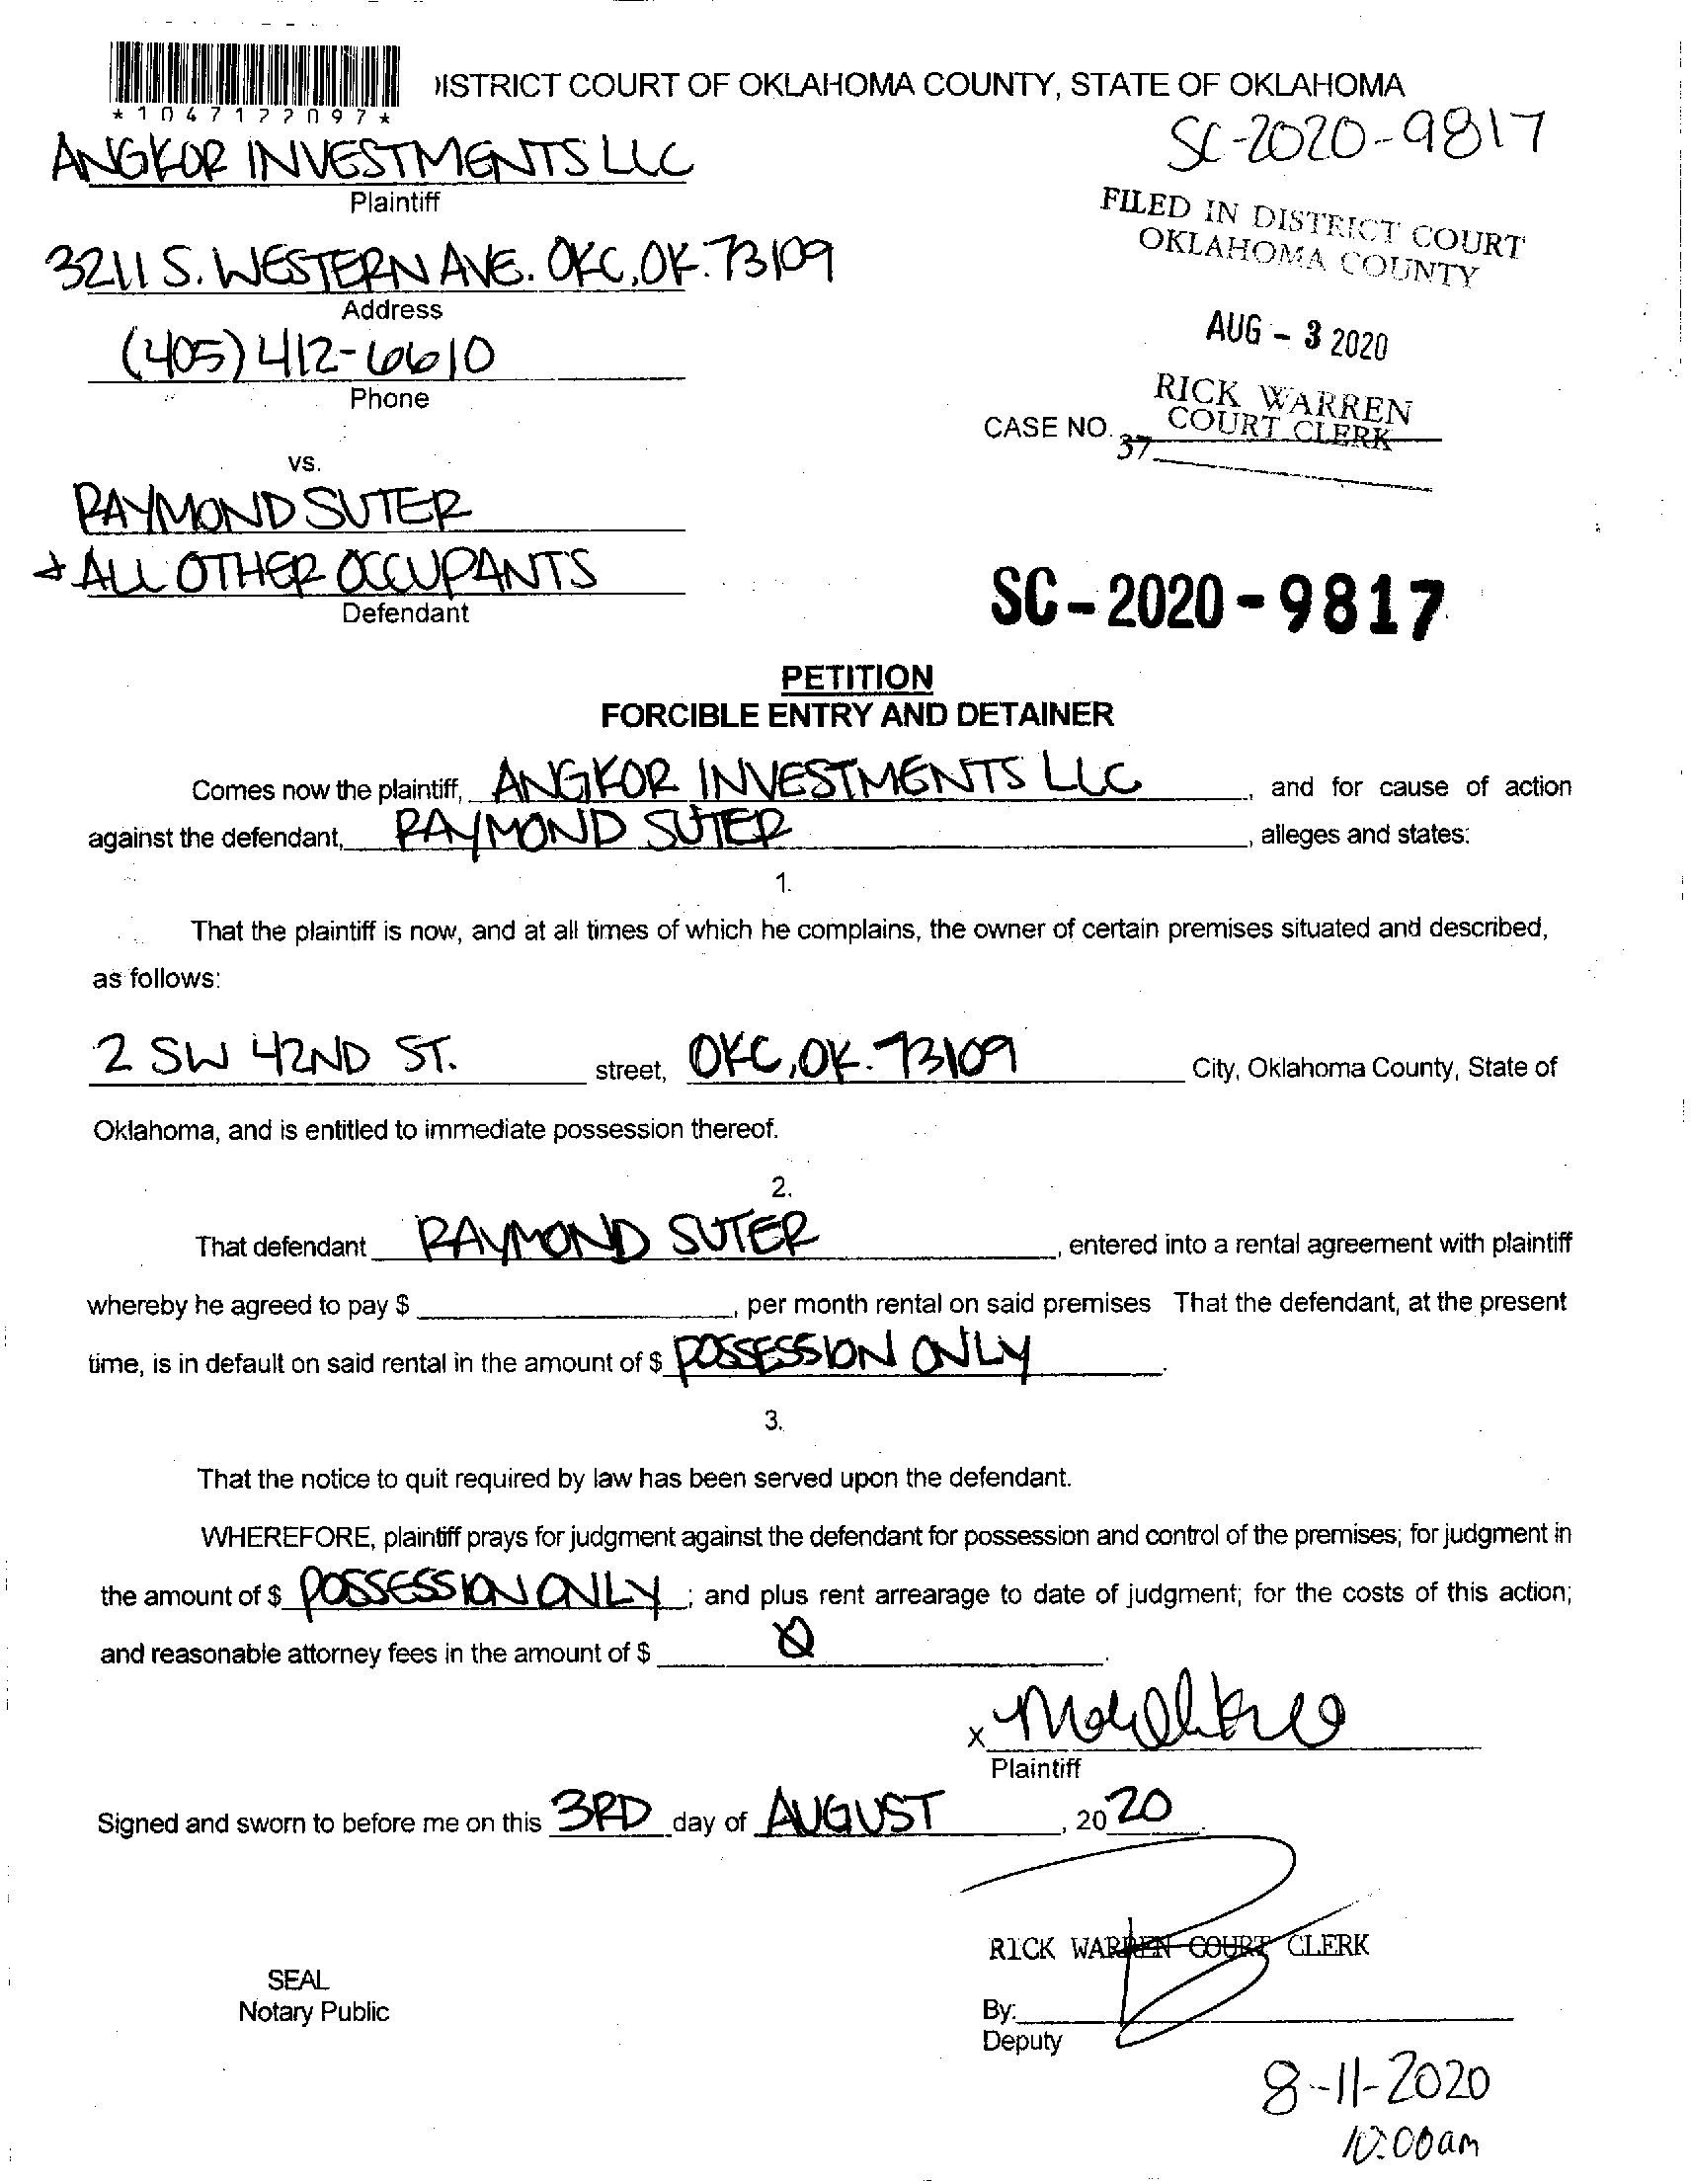 ISTRICT COURT OF OKLAHOMA COUNTY, STATE OF OKLAHOMA
*1047122097*
SC-2020-9817
ANGKOR INVESTMENTS LLC
Plaintiff
FILED IN DISTRICT COURT
OKLAHOMA COUNTY
3211 S. WESTERN AVE. OKC, OK. 73109
Address
AUG - 3 2020
(405) 412-6610
Phone
RICK WARREN
COURT CLERK
CASE NO.
37
vs.
RAYMOND SUTER
+ ALL OTHER OCCUPANTS
Defendant
SC-2020-9817
PETITION
FORCIBLE ENTRY AND DETAINER
Comes now the plaintiff, ANGKOR INVESTMENTS LLC, and for cause of action
against the defendant, RAYMOND SUTER, alleges and states:
1.
That the plaintiff is now, and at all times of which he complains, the owner of certain premises situated and described,
as follows:
2 SW 42ND ST. street, OKC, OK. 73109 City, Oklahoma County, State of
Oklahoma, and is entitled to immediate possession thereof.
2.
That defendant RAYMOND SUTER, entered into a rental agreement with plaintiff
whereby he agreed to pay $ , per month rental on said premises That the defendant, at the present
time, is in default on said rental in the amount of $ POSSESSION ONLY.
3.
That the notice to quit required by law has been served upon the defendant.
WHEREFORE, plaintiff prays for judgment against the defendant for possession and control of the premises; for judgment in
the amount of $ POSSESSION ONLY; and plus rent arrearage to date of judgment; for the costs of this action;
and reasonable attorney fees in the amount of $ 0.
x
Plaintiff
Signed and sworn to before me on this 3RD day of AUGUST, 2020.
RICK WARREN COURT CLERK
SEAL
Notary Public
By:
Deputy
8-11-2020
10:00am